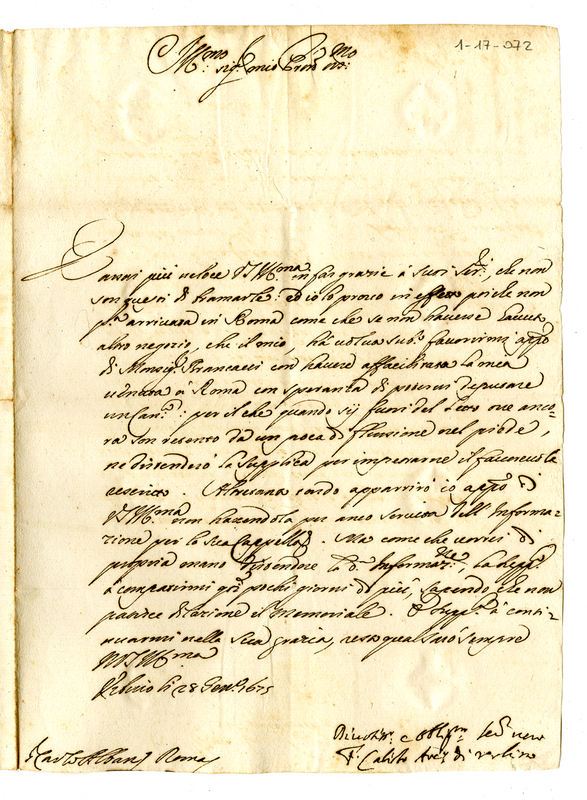 1-17-072
Ill.mo Sig.r mio Pron. Oss.mo
È assai più veloce V.S. Ill.ma in far grazie à suoi Ser.ri, che non
son questi di bramarle: ed io lo provo in effetto poiche non
p.a arrivata in Roma come che se non havesse havuto
altro negozio, che il mio, hà voluto sub.o favorirmi app.o
di Monsig.r con havere affacilitata la mia
venuta à Roma con speranza di potermi deputare
un Can.co: per il che quando sij fuori del letto ove anco-
ra son retento da un poco di flussione nel piede,
ne distenderò la supplica per impetrarne il favorevole
rescritto. Altretanto tardo apparirò io app.o di
V.S. Ill.ma non havendola per anco servita dell'Informa-
zione per la sua Cappella. Ma come che vorrei di
propria mano distendere la d.a Informaz.ne, la supp.co
à compatirmi q.o pochi giorni di più, sapendo, che non
patisce dilazione il Memoriale. E supp.la à conti-
nuarmi nella sua grazia, resto qual sarò sempre
Di V.S. Ill.ma
Urbino li 28 Gen.o 1675
Divot.mo e Obl.mo Ser. vero
Carlo Albani Roma
F. Calisto Arciv. di Urbino